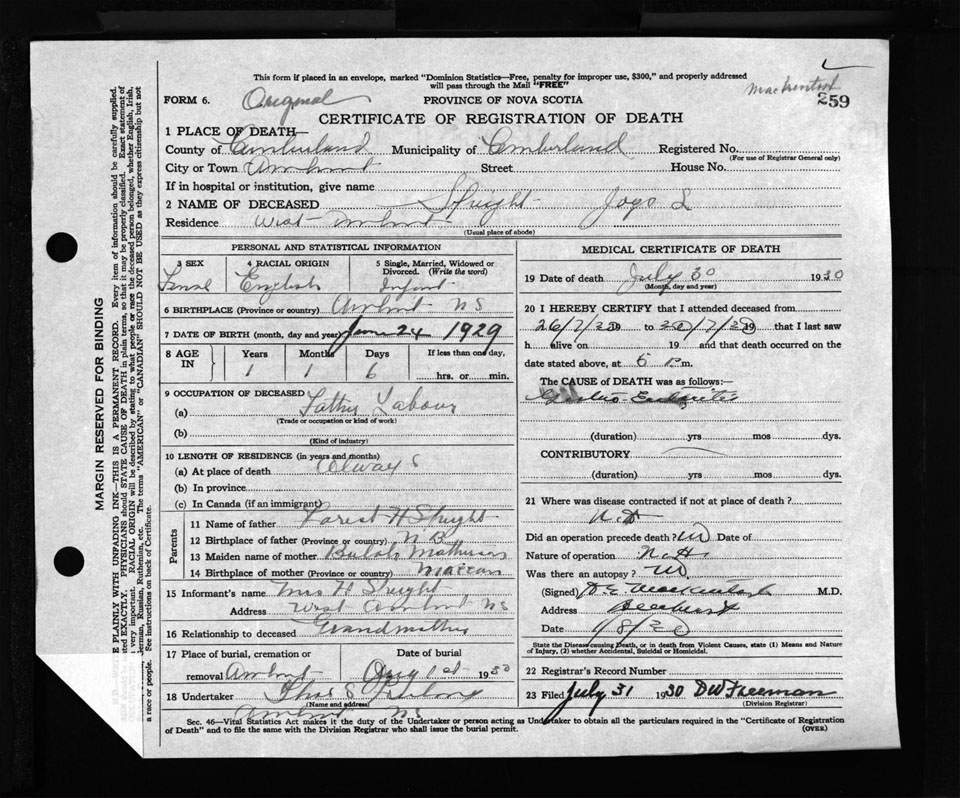 This form if placed in an envelope, marked "Dominion Statistics—Free, penalty for improper use, $300," and properly addressed
will pass through the Mail "FREE"
MacKintosh
FORM 6. Original PROVINCE OF NOVA SCOTIA 259
CERTIFICATE OF REGISTRATION OF DEATH
1 PLACE OF DEATH—
County of Cumberland Municipality of Cumberland Registered No.
(For use of Registrar General only)
City or Town Amherst Street House No.
If in hospital or institution, give name
2 NAME OF DECEASED Speight Joyo L
Residence West Amherst
(Usual place of abode)
PERSONAL AND STATISTICAL INFORMATION
3 SEX 4 RACIAL ORIGIN 5 Single, Married, Widowed or Divorced. (Write the word)
Female English Infant
6 BIRTHPLACE (Province or country) Amherst NS
7 DATE OF BIRTH (month, day and year) 24 1929
8 AGE IN Years Months Days If less than one day,
1 1 6 hrs. or min.
9 OCCUPATION OF DECEASED
(a) Father Labour
(Trade or occupation or kind of work)
(b)
(Kind of industry)
10 LENGTH OF RESIDENCE (in years and months)
(a) At place of death Always
(b) In province
(c) In Canada (if an immigrant)
Parents
11 Name of father Forest H Speight
12 Birthplace of father (Province or country) N B
13 Maiden name of mother Beulah Matheson
14 Birthplace of mother (Province or country) Maccan
15 Informant's name Mrs H Speight
Address West Amherst NS
16 Relationship to deceased Grandmother
17 Place of burial, cremation or removal Date of burial
Amherst Aug 1st 1930
18 Undertaker
(Name and address)
Amherst NS
MEDICAL CERTIFICATE OF DEATH
19 Date of death July 30 1930
(Month, day and year)
20 I HEREBY CERTIFY that I attended deceased from
26/7/30 19 to 30/7/30 19 that I last saw
h alive on 19 and that death occurred on the
date stated above, at 6 P.m.
The CAUSE OF DEATH was as follows:—
Gastro Enteritis
(duration) yrs mos dys.
CONTRIBUTORY
(duration) yrs mos dys.
21 Where was disease contracted if not at place of death?
Did an operation precede death? Date of
Nature of operation
Was there an autopsy?
(Signed) MacKintosh M.D.
Address Amherst
Date 1/8/30
State the Disease causing Death, or in death from Violent Causes, state (1) Means and Nature of Injury, (2) whether Accidental, Suicidal or Homicidal.
22 Registrar's Record Number
23 Filed July 31 1930 DW Freeman
(Division Registrar)
Sec. 46—Vital Statistics Act makes it the duty of the Undertaker or person acting as Undertaker to obtain all the particulars required in the "Certificate of Registration
of Death" and to file the same with the Division Registrar who shall issue the burial permit. (OVER)
MARGIN RESERVED FOR BINDING
E PLAINLY WITH UNFADING INK—THIS IS A PERMANENT RECORD. Every item of information should be carefully supplied.
ted EXACTLY. PHYSICIANS should STATE CAUSE OF DEATH in plain terms, so that it may be properly classified. Exact statement of
very important. RACIAL ORIGIN will be described by stating to what people or race the deceased person belonged, whether English, Irish,
German, Russian, Ruthenian, etc. The terms "AMERICAN" or "CANADIAN" SHOULD NOT BE USED as they express citizenship but not
a race or people. See instructions on back of Certificate.